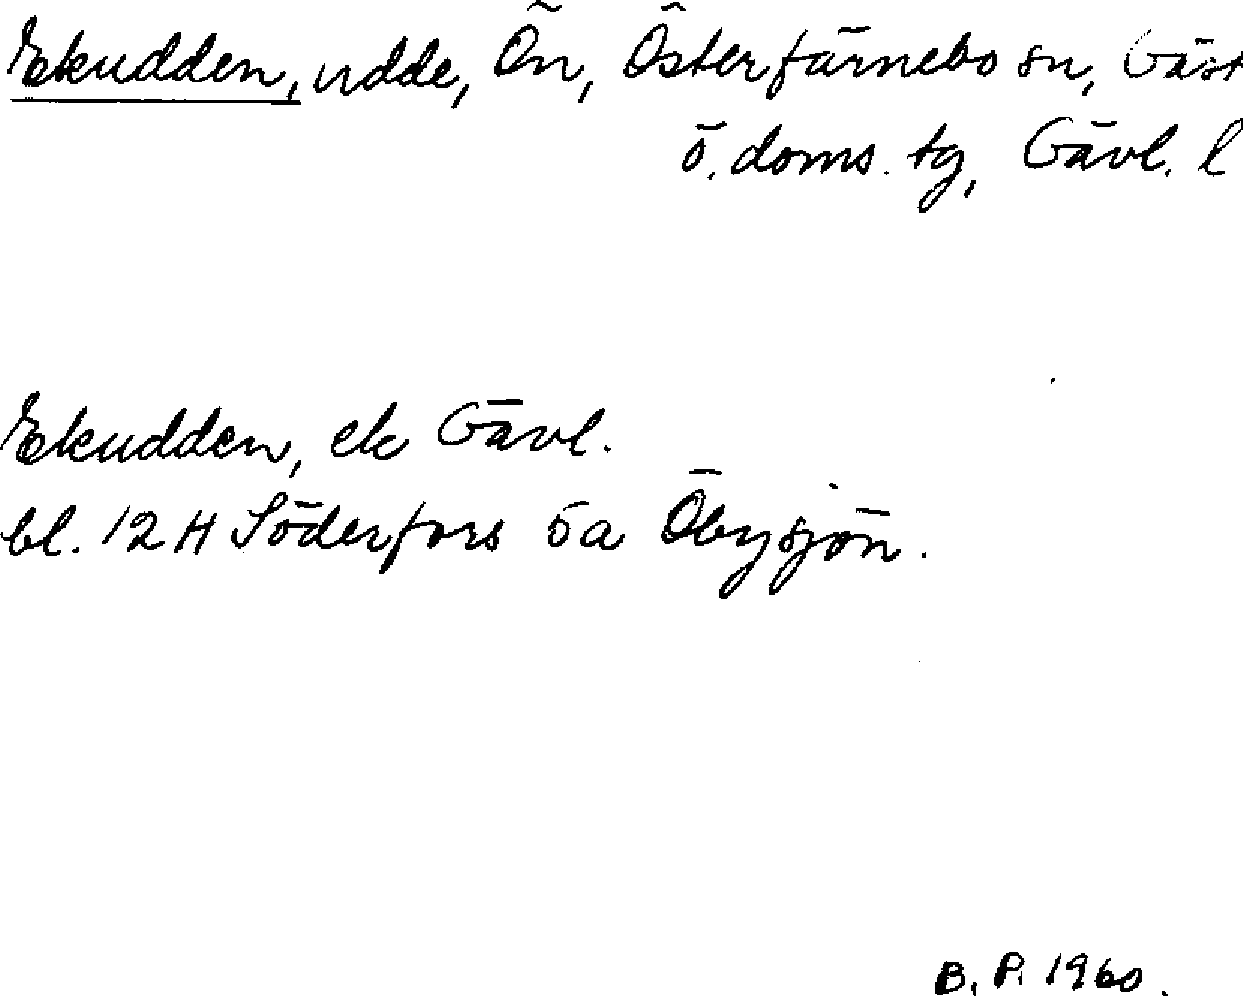 Ekudden, udde, Ön, Österfärnebo sn, Gäst
ö. doms. tg, Gävl. l
Ekudden, ek Gävl.
bl. 12 H Söderfors 5a Öbysjön.
B. P. 1960.